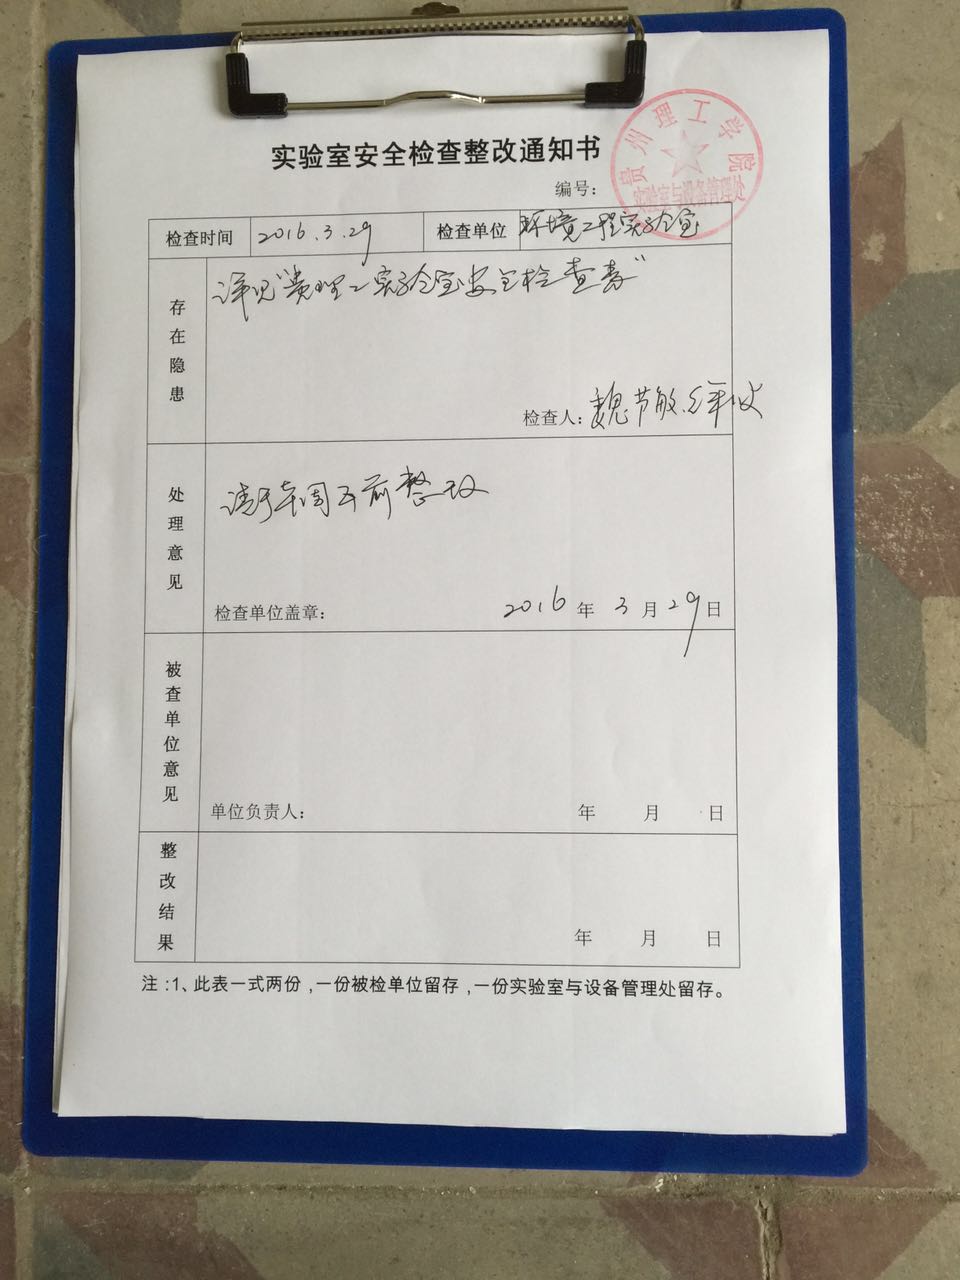 实验室安全检查整改通知书
编号：
贵州理工学院
实验室与设备管理处
检查时间 2016.3.29 检查单位 环境工程实验室
存在隐患
详见"贵理工实验室安全检查表"
检查人：魏节敏
处理意见
请于本周五前整改
检查单位盖章： 2016年3月29日
被查单位意见
单位负责人： 年 月 日
整改结果
年 月 日
注：1、此表一式两份，一份被检单位留存，一份实验室与设备管理处留存。